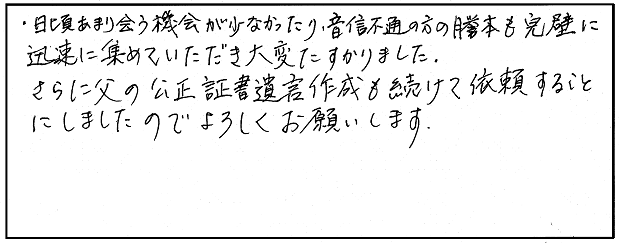 ・日頃あまり会う機会が少なかったり、音信不通の方の謄本も完璧に
迅速に集めていただき大変たすかりました。
さらに父の公正証書遺言作成も続けて依頼すること
にしましたのでよろしくお願いします。